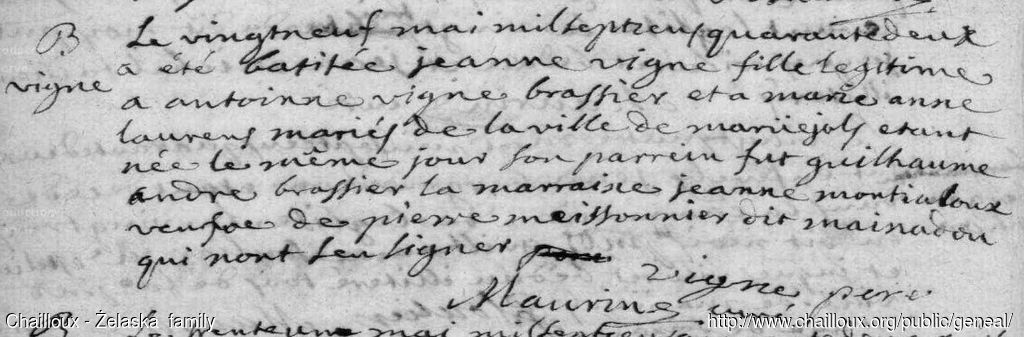 B
vigne
Le vingtneuf mai mil sept cens quarante deux
a été batisée jeanne vigne fille legitime
a antoinne vigne brassier et a marie anne
laurens mariés de la ville de maruejols etant
née le même jour son parrein fut guilhaume
andre brassier la marraine jeanne montialoux
veufve de pierre meissonnier dit mainadou
qui nont seu signer
vigne pere
Maurin curé
B
mai mil sept cens
Chailloux - Želaska family
http://www.chailloux.org/public/geneal/